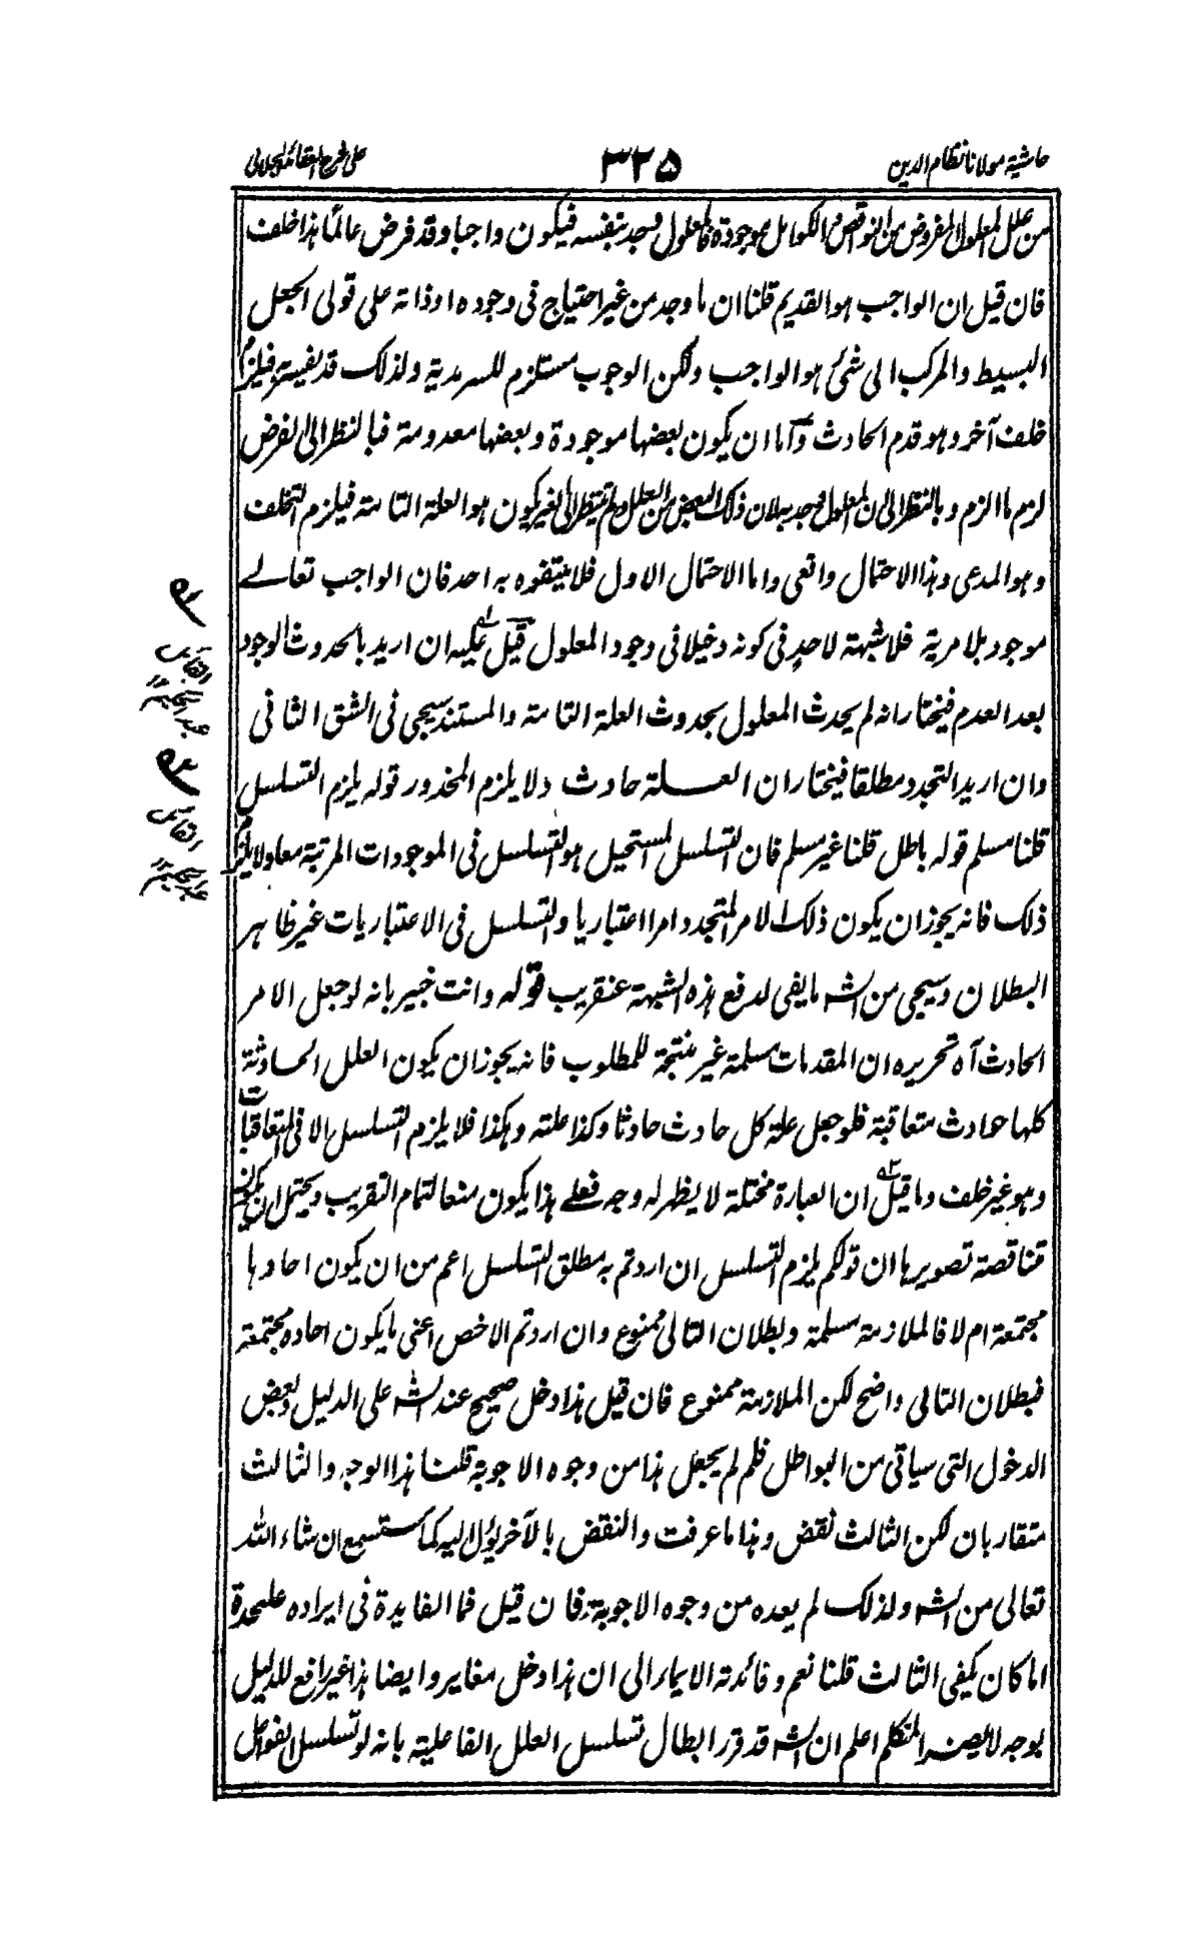 حاشية مولانا نظام الدين
٣٢٥
على شرح العقائد الجلالى
من علل المعلول المفروض من النواقص والكوامل موجودة فالمعلول وجد بنفسه فيكون واجبا وقد فرض عالمًا هذا خلف
فان قيل ان الواجب هو القديم قلنا ان ما وجد من غير احتياج فى وجوده او ذاته على قولى الجعل
البسيط والمركب الى شئ هو الواجب ولكن الوجوب مستلزم للسرمدية ولذلك قد يفسر به فيلزم
خلف آخر وهو قدم الحادث وآما ان يكون بعضها موجودة وبعضها معدومة فبالنظر الى الفرض
لزم ما الزم وبالنظر الى ان المعلول وجد بلا ن ذلك البعض من العلل ولم ينتظر الى الغير يكون هو العلة التامة فيلزم التخلف
وهو المدعى وهذا الاحتمال واقعى واما الاحتمال الاول فلا يتفوه به احد فان الواجب تعالے
موجود بلا مرية فلا شبهة لاحد فى كونه دخيلا فى وجود المعلول قيل عليه ان اريد بالحدوث الوجود
بعد العدم فيختار انه لم يحدث المعلول بحدوث العلة التامة والمستند سيجى فى الشق الثانى
وان اريد التجدد مطلقا فيختار ان العلة حادث ولا يلزم المحذور قوله يلزم التسلسل
قلنا مسلم قوله باطل قلنا غير مسلم فان التسلسل المستحيل هو التسلسل فى الموجودات المرتبة معا ولا يلزم
ذلك فانه يجوز ان يكون ذلك الامر المتجدد امرا اعتباريا والتسلسل فى الاعتباريات غير ظاهر
البطلان وسيجى من الشه ما يفى لدفع هذه الشبهة عنقريب قوله وانت خبير بانه لو جعل الامر
الحادث آه تحريره ان المقدمات مسلمة غير منتجة للمطلوب فانه يجوز ان يكون العلل الحادثة
كلها حوادث متعاقبة فلو جعل علة كل حادث حادثا وكذا علته وهكذا فلا يلزم التسلسل الا فى المتعاقبات
وهو غير خلف وما قيل ان العبارة مختلة لا يظهر له وجه فعلے هذا يكون منعا لتمام التقريب ويحتمل ان يكون
مناقضة تصويرها ان قولكم يلزم التسلسل ان اردتم به مطلق التسلسل اعم من ان يكون احادها
مجتمعة ام لا فالملازمة مسلمة وبطلان التالى ممنوع وان اردتم الاخص اعنى ما يكون احاده مجتمعة
فبطلان التالى واضح لكن الملازمة ممنوع فان قيل هذا دخل صحيح عند الشه على الدليل وبعض
الدخول التى سياتى من البواطل فلم لم يجعل هذا من وجوه الاجوبة قلنا هذا الوجه والثالث
متقاربان لكن الثالث نقض وهذا ما عرفت والنقض بالآخر يؤل اليه كما ستسمع ان شاء الله
تعالى من الشه ولذلك لم يعده من وجوه الاجوبة فان قيل فما الفايدة فى ايراده عليحدة
اما كان يكفى الثالث قلنا نعم وفائدته الايماء الى ان هذا دخل مغاير وايضا هذا غير رافع للدليل
بوجه لا يضر المتكلم اعلم ان الشه قد قرر ابطال تسلسل العلل الفاعلية بانه لو تسلسل الفواعل
القائل
عبد الحكيم ١٢
القائل
عبد الحكيم ١٢